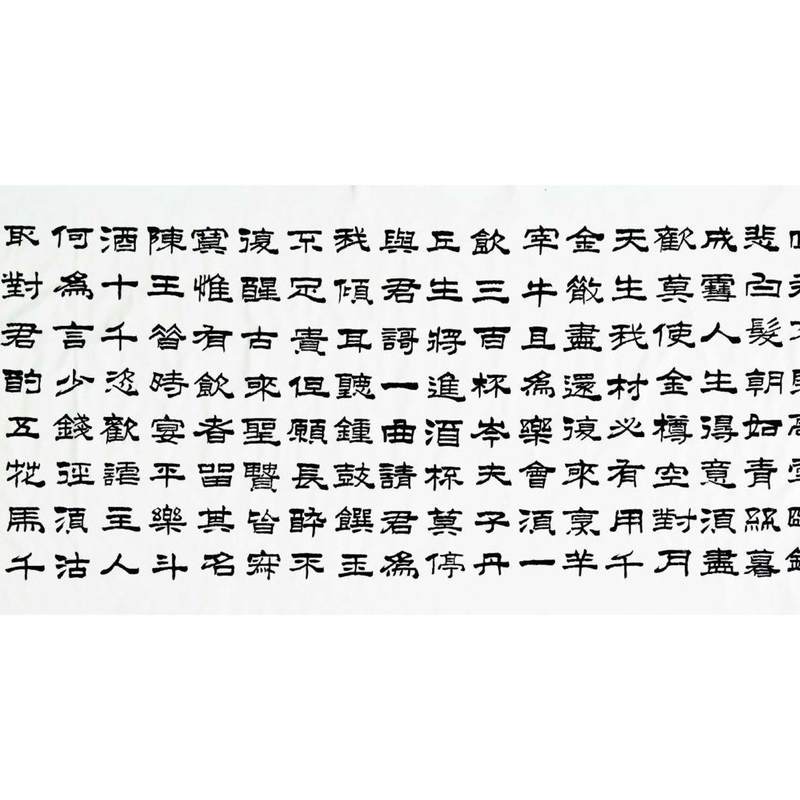 悲白髮朝如青絲暮
成雪人生得意須盡
歡莫使金樽空對月
天生我材必有用千
金散盡還復來烹羊
宰牛且為樂會須一
飲三百杯岑夫子丹
丘生將進酒杯莫停
與君哥一曲請君為
我傾耳聽鍾鼓饌玉
不足貴但願長醉不
復醒古來聖賢皆寂
寞惟有飲者留其名
陳王昔時宴平樂斗
酒十千恣歡謔主人
何為言少錢徑須沽
取對君酌五花馬千